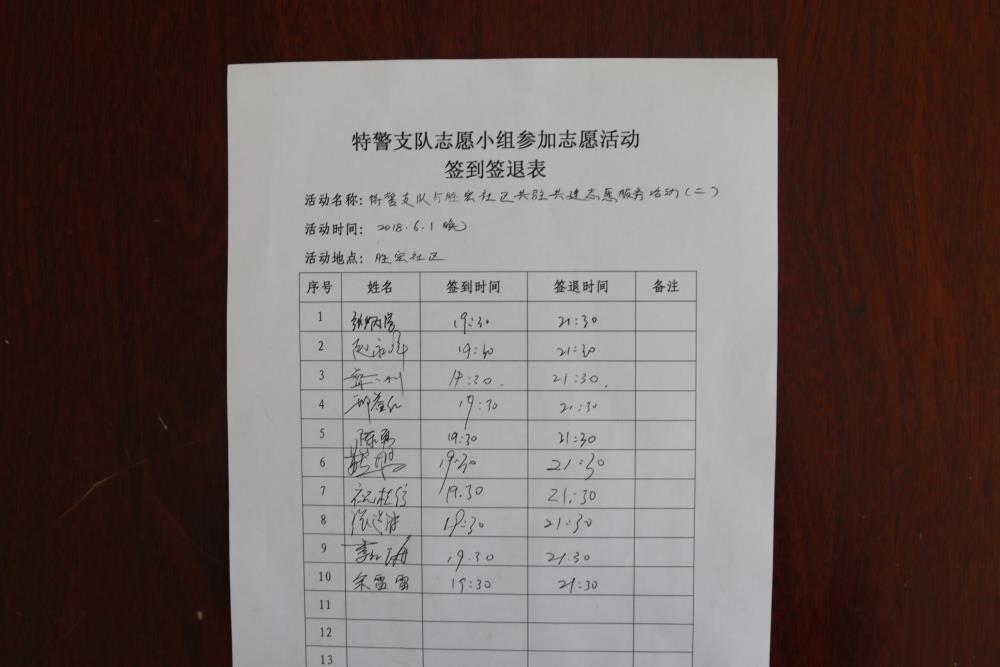 特警支队志愿小组参加志愿活动
签到签退表
活动名称：特警支队与胜宏社区共驻共建志愿服务活动（二）
活动时间： 2018.6.1 晚
活动地点： 胜宏社区
序号 姓名 签到时间 签退时间 备注
1 19:30 21:30
2 19:30 21:30
3 19:30. 21:30.
4 19:30 21:30
5 陈勇 19:30 21:30
6 19:30 21:30
7 19.30 21:30
8 19:30 21:30
9 19.30 21.30
10 余雷雷 19:30 21:30
11
12
13